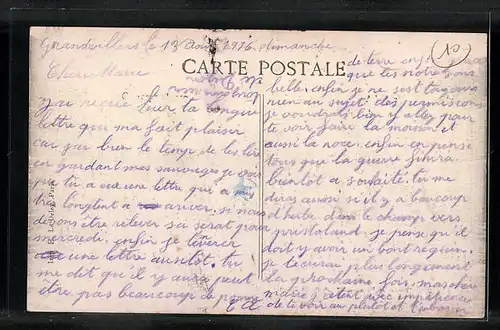 Grandvilliers le 13 Aout 1916 dimanche
Chère Marie
CARTE POSTALE
j'ai reçue hier ta longue
lettre qui ma fait plaisir
car jai bien le temps de les lire
en gardant mes sauvages je vois
que tu a eue une lettre qui a mis
longtent a arriver, si nous
devons être relever sa serat pour
mercredi. enfin je t'ecrirer
une lettre aussitot. tu
me dit qu'il y aura peut
être pas beaucoup de pommes
de terre enfin
que les notre sons
belle. enfin je ne sest toujours
rien au sujet des permissions
je voudrais bien y allez pour
te voir faire la moison et
aussi la noce. enfin en pense
tous que la guerre finira
bientot a souhaité. tu me
diras aussi si il y a baucoup
d'herbe dans le champ vers
je pense qu'il
doit y avoir un bont regain.
je tecrirai plus longuement
la prochaine fois, ma chère
Marie
de te voir au plutot et